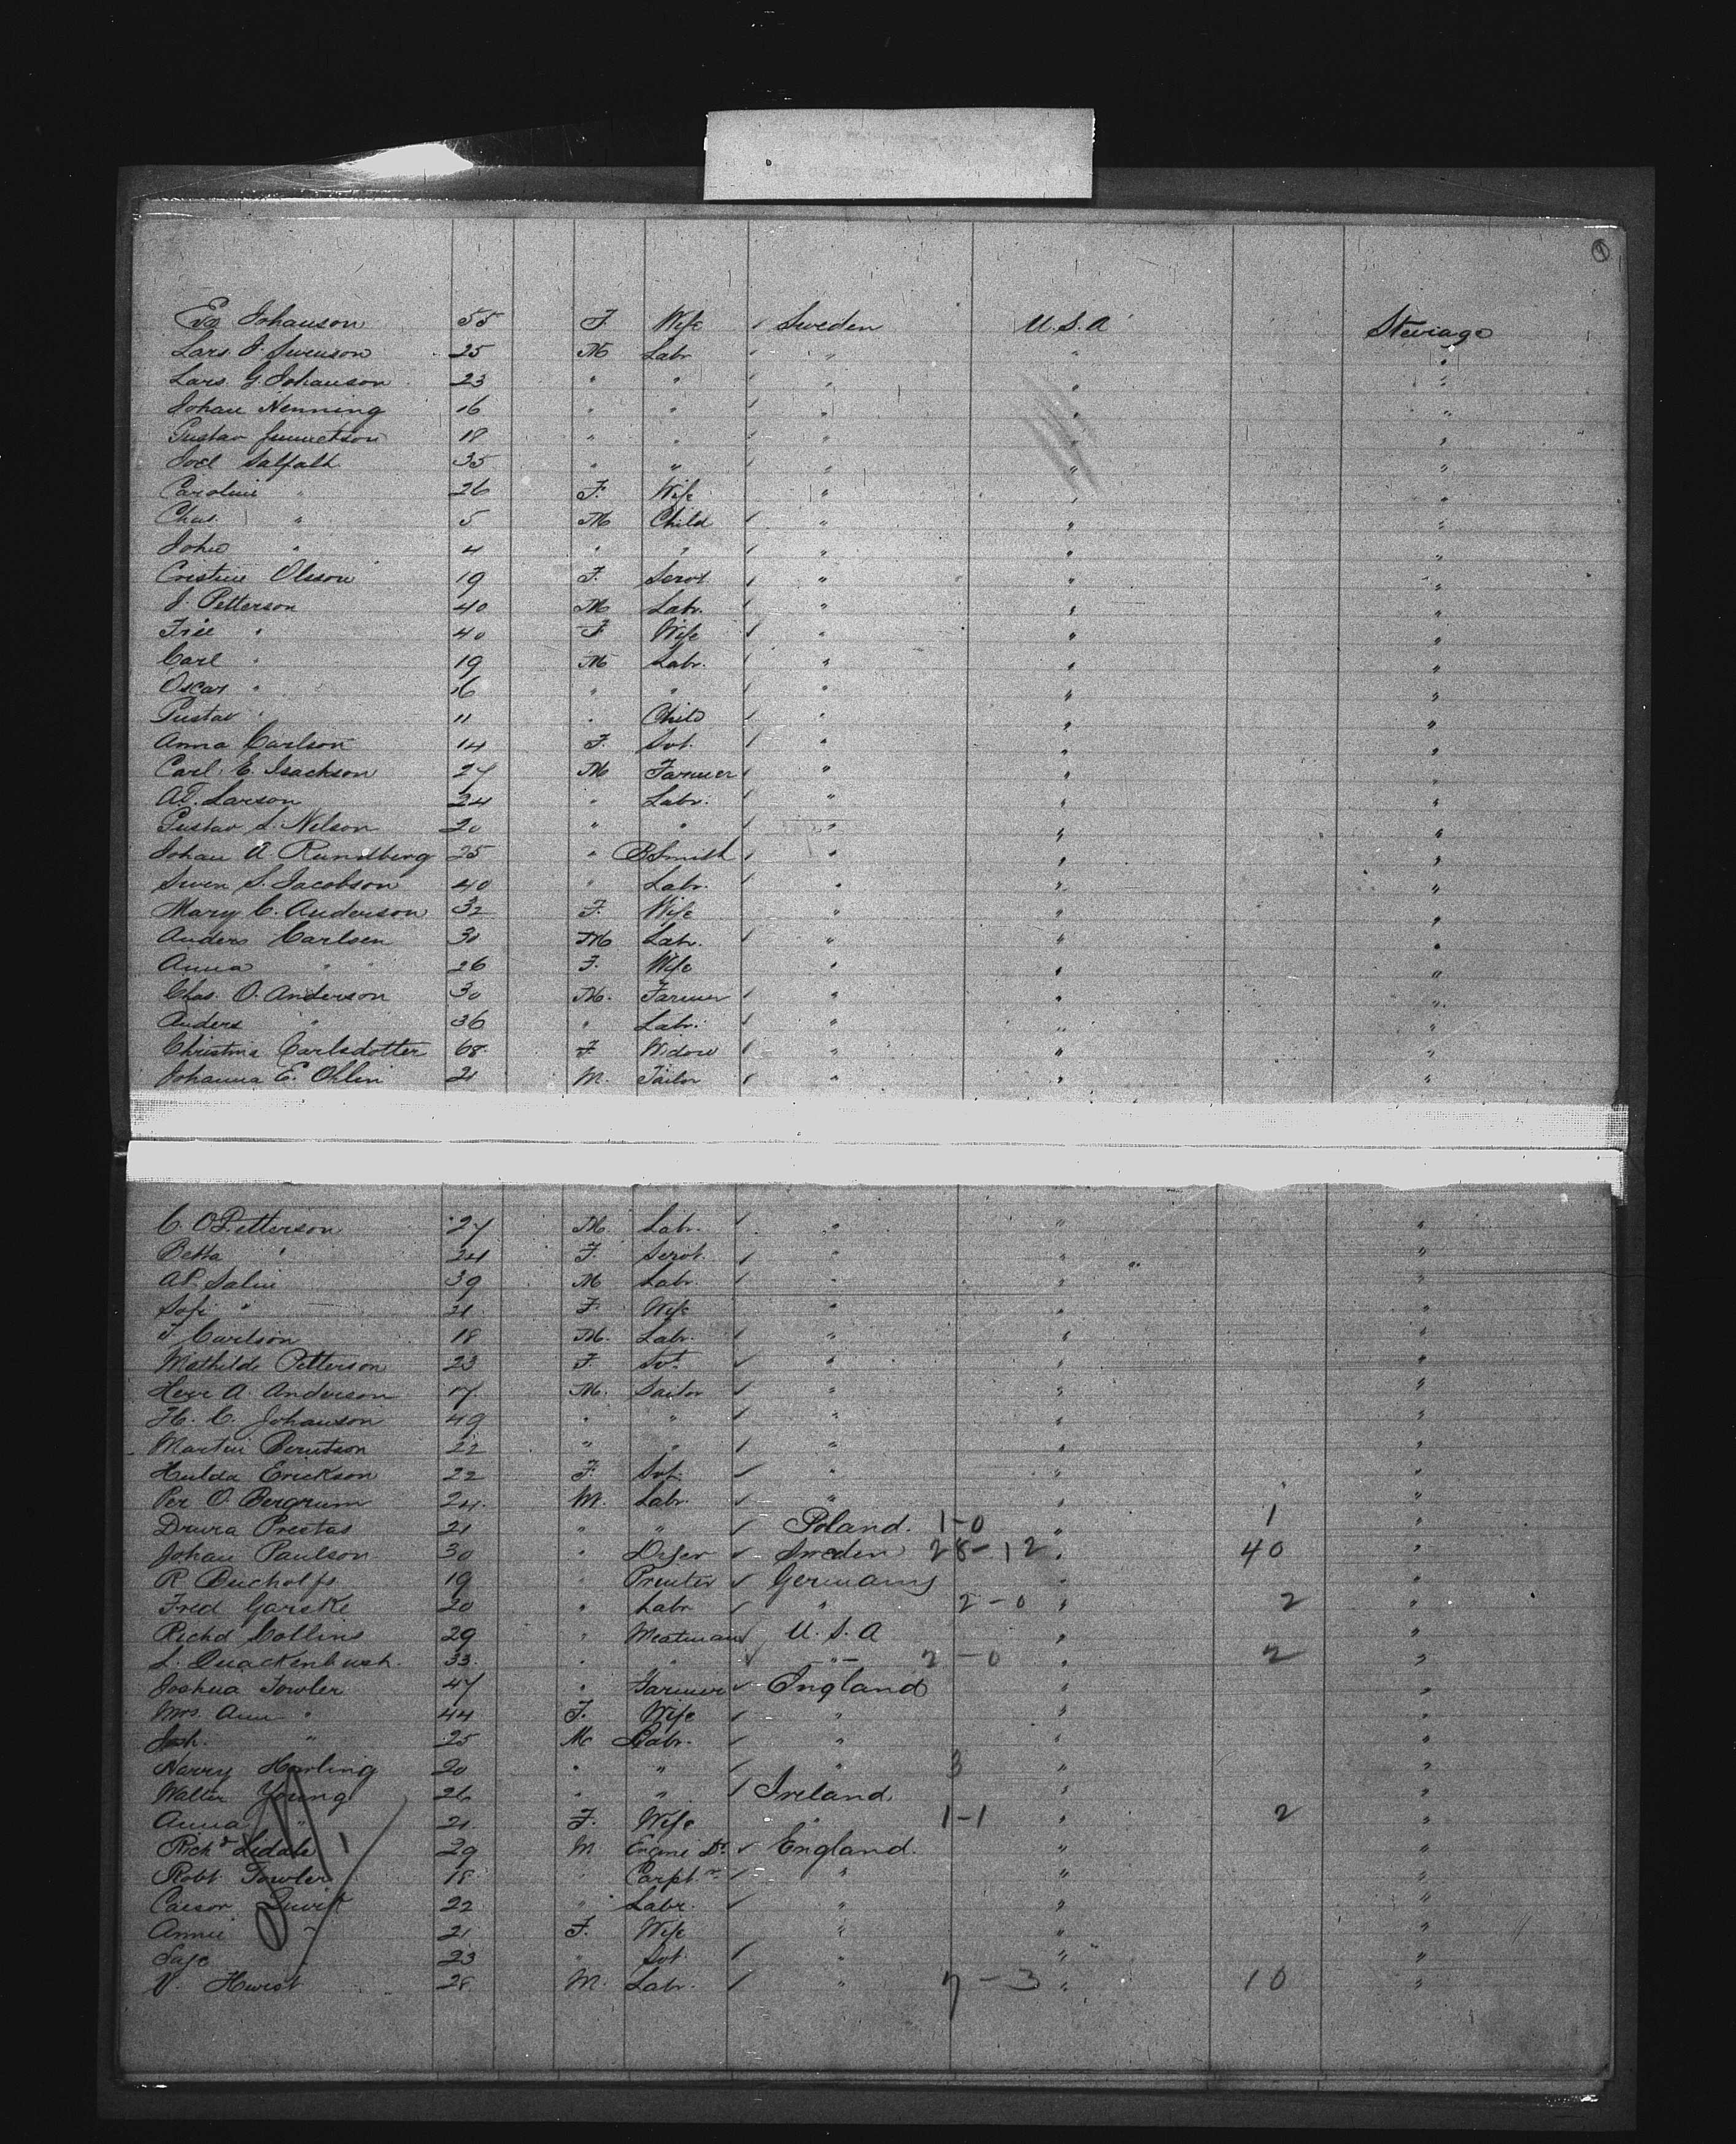 Eva Johanson 55 F. Wife / Sweden U.S.A Steerage
Lars J. Swenson 25 M Labr " " "
Lars G. Johanson 23 " " / " " "
Johan Henning 16 " " / " " "
Gustav 18 " " / " " "
Joel Salfalt 35 " " / " " "
Caroline " 26 F. Wife " " "
Chas. " 5 M Child / " " "
John " 4 " " / " " "
Cristine Olsson 19 F. Servt. / " " "
J. Petterson 40 M Labr. / " " "
" 40 F Wife / " " "
Carl " 19 M Labr. / " " "
Oscar " 16 " " / " " "
Gustav " 11 " Child / " " "
Anna Carlson 14 F. Svt. / " " "
Carl E. Isackson 27 M Farmer / " " "
A.T. Larson 24 " Labr. / " " "
Gustav S. Nelson 20 " " / " " "
Johan A Rundberg 25 " B Smith / " " "
Swen S. Jacobson 40 " Labr. / " " "
Mary C. Anderson 32 F. Wife " " "
Anders Carlsen 30 M Labr. / " " "
Anna " 26 F. Wife " " "
Chas. O. Anderson 30 M. Farmer / " " "
Anders " 36 " Labr. / " " "
Christina Carlsdotter 68 F Widow / " " "
Johanna E. Ohlin 21 M. Tailor / " " "
C. O Petterson 27 M Labr. / " " "
Betta " 24 F. Servt. / " " "
A.P. Salin 39 M Labr. / " " "
Sofi " 21 F. Wife " " "
Carlson 18 M. Labr. / " " "
Mathilde Petterson 23 F. Svt. / " " "
A. Anderson 17 M. Sailor / " " "
H. C. Johanson 49 " " / " " "
Martin Berntson 22 " " / " " "
Hulda Erickson 22 F. Svt. / " " "
Per O. Bergrum 24 M. Labr. / " " "
21 " " / Poland. 1-0 " 1 "
Johan Paulson 30 " / Sweden 28-12 " 40 "
R. 19 " Printer / Germany " "
Fred Garske 20 " Labr / " 2-0 " 2 "
Richd Collins 29 " Meatman / U.S.A " "
L. Quackenbush. 33 " " / " 2-0 " 2 "
Joshua Fowler 47 " Farmer / England " "
Mrs. Ann " 44 F. Wife / " " "
Josh. " 25 M Labr. / " " "
Harry Harling 20 " " / " 3 " "
Walter Young 26 " " / Ireland " "
Anna " 21 F. Wife " 1-1 " 2 "
Richd 29 M Engine Dr. / England. " "
Robt. Fowler 18 " Carptr / " " "
Swift 22 " Labr. / " " "
Annie " 21 F. Wife " " "
23 " Svt. / " " "
28 M. Labr. / " 7-3 " 10 "